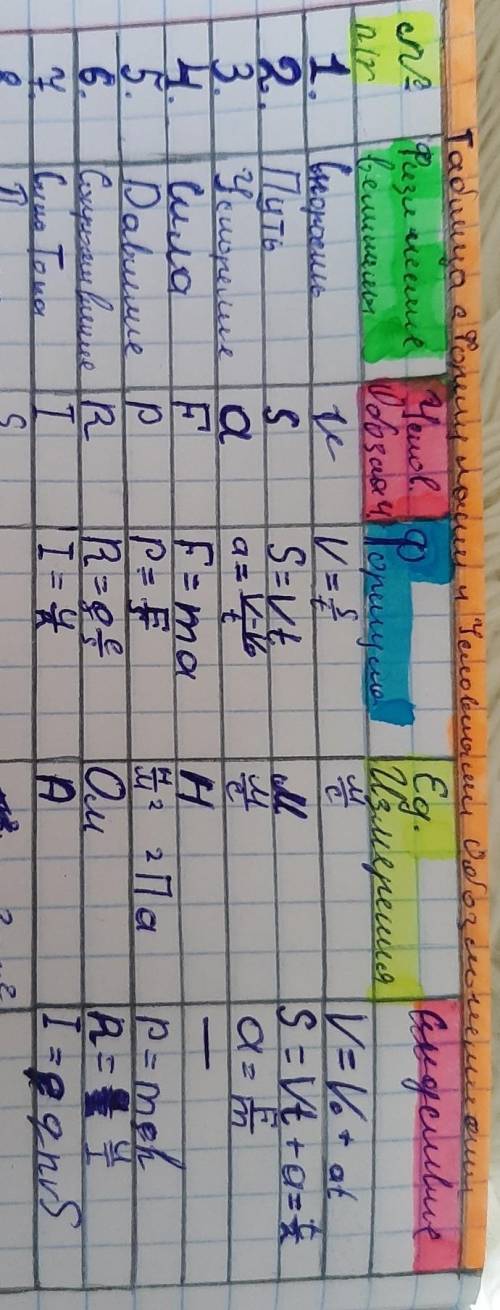 Таблица с Формулами и Условными Обозначениями
№ п/п Физические величины Услов. Обознач. Формула Ед. Измерения Следствие
1. Скорость V V = S/t м/с V = V₀ + at
2. Путь S S = Vt м S = Vt + a = t/2
3. Ускорение a a = V-V₀/t м/с a = F/m
4. Сила F F = ma Н —
5. Давление P P = F/S Н/м² 2 Па p = mgh
6. Сопротивление R R = ρ e/s Ом R = U/I
7. Сила Тока I I = U/R А I = q n v S